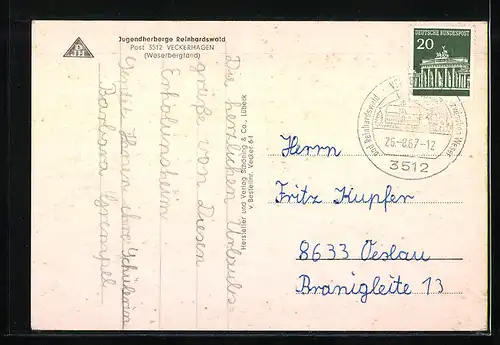 Jugendherberge Reinhardswald
Post 3512 VECKERHAGEN
(Weserbergland)
Die herrlichen Urlaubs-
grüße von Diesen
Erholungsheim
sendet Ihnen ihre Schülerin
Barbara
Hersteller und Verlag Schöning & Co., Lübeck
v Bestellnr. Vecker 64
DEUTSCHE BUNDESPOST
20
und Reinhardswald
Weser
25.-8.67-12
3512
Herrn
Fritz Kupfer
8633 Oeslau
Branigleite 13